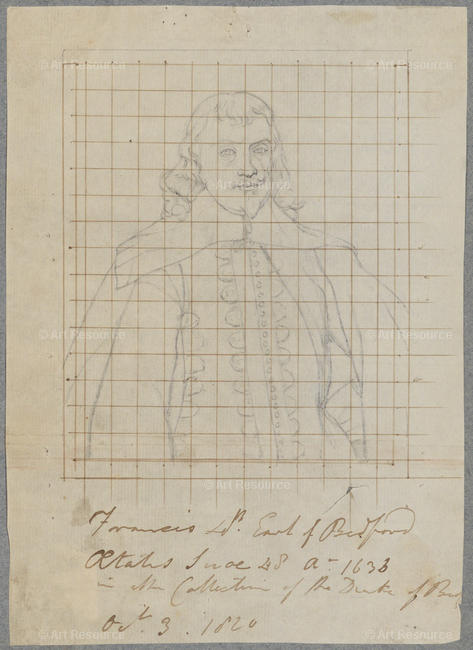 © Art Resource © Art Resource
© Art Resource
© Art Resource © Art Resource
© Art Resource
Francis 4th Earl of Bedford
Ætatis Suae 48 Ao 1636
in the Collection of the Duke of Bed
Oct. 3. 1820
© Art Resource © Art Resource